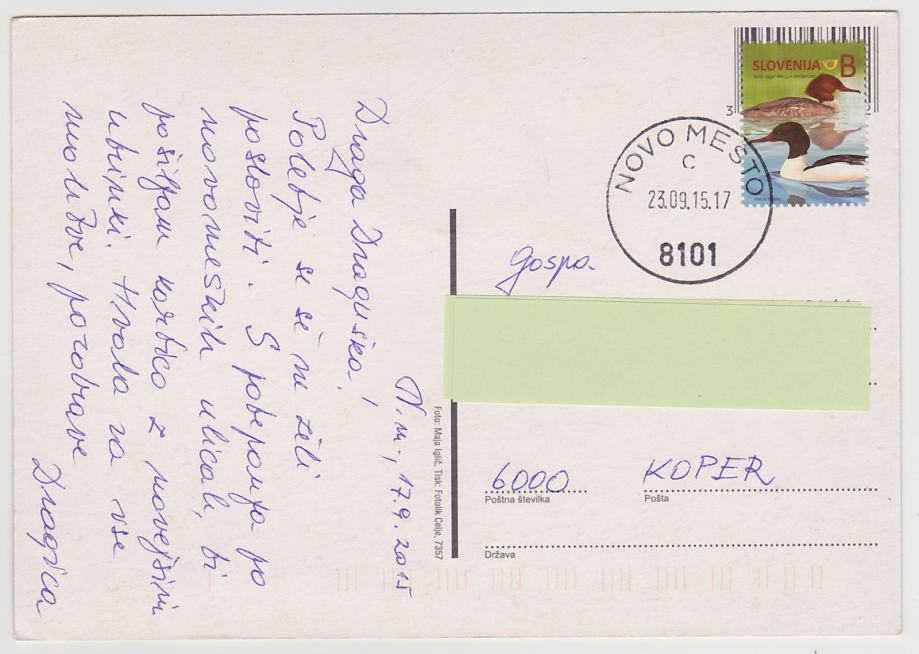 N.m., 17.9.2015
Draga Draguška!
Poletje se še ne želi
posloviti. S potepanja po
novomeških ulicah, ti
pošiljam kartico z novejšimi
utrinki. Hvala za vse
molitve, pozdrave
Dragica
Foto: Maja Iglič, Tisk: Fotolik Celje, 7357
SLOVENIJA B
NOVO MESTO
C
23.09.15.17
8101
Gospa.
6000 KOPER
Poštna številka Pošta
Država